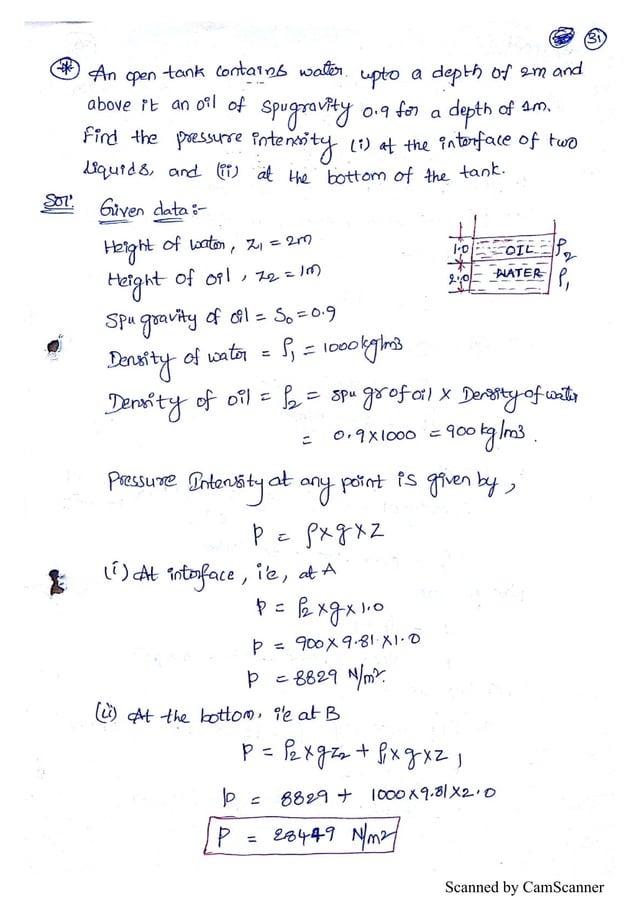 31
* An open tank contains water upto a depth of 2m and
above it an oil of spu gravity 0.9 for a depth of 1m.
Find the pressure intensity (i) at the interface of two
liquids, and (ii) at the bottom of the tank.
Sol:
Given data :-
Height of water, Z1 = 2m
Height of oil, Z2 = 1m
1.0 OIL ρ2
2.0 WATER ρ1
Spu gravity of oil = So = 0.9
Density of water = ρ1 = 1000 kg/m3
Density of oil = ρ2 = spu gr of oil × Density of water
= 0.9×1000 = 900 kg/m3.
Pressure Intensity at any point is given by,
p = ρ×g×Z
(i) At interface, i'e, at A
p = ρ2×g×1.0
p = 900×9.81×1.0
p = 8829 N/m2.
(ii) At the bottom. i'e at B
p = ρ2×gz2 + ρ1×g×Z1
p = 8829 + 1000×9.81×2.0
P = 28449 N/m2
Scanned by CamScanner